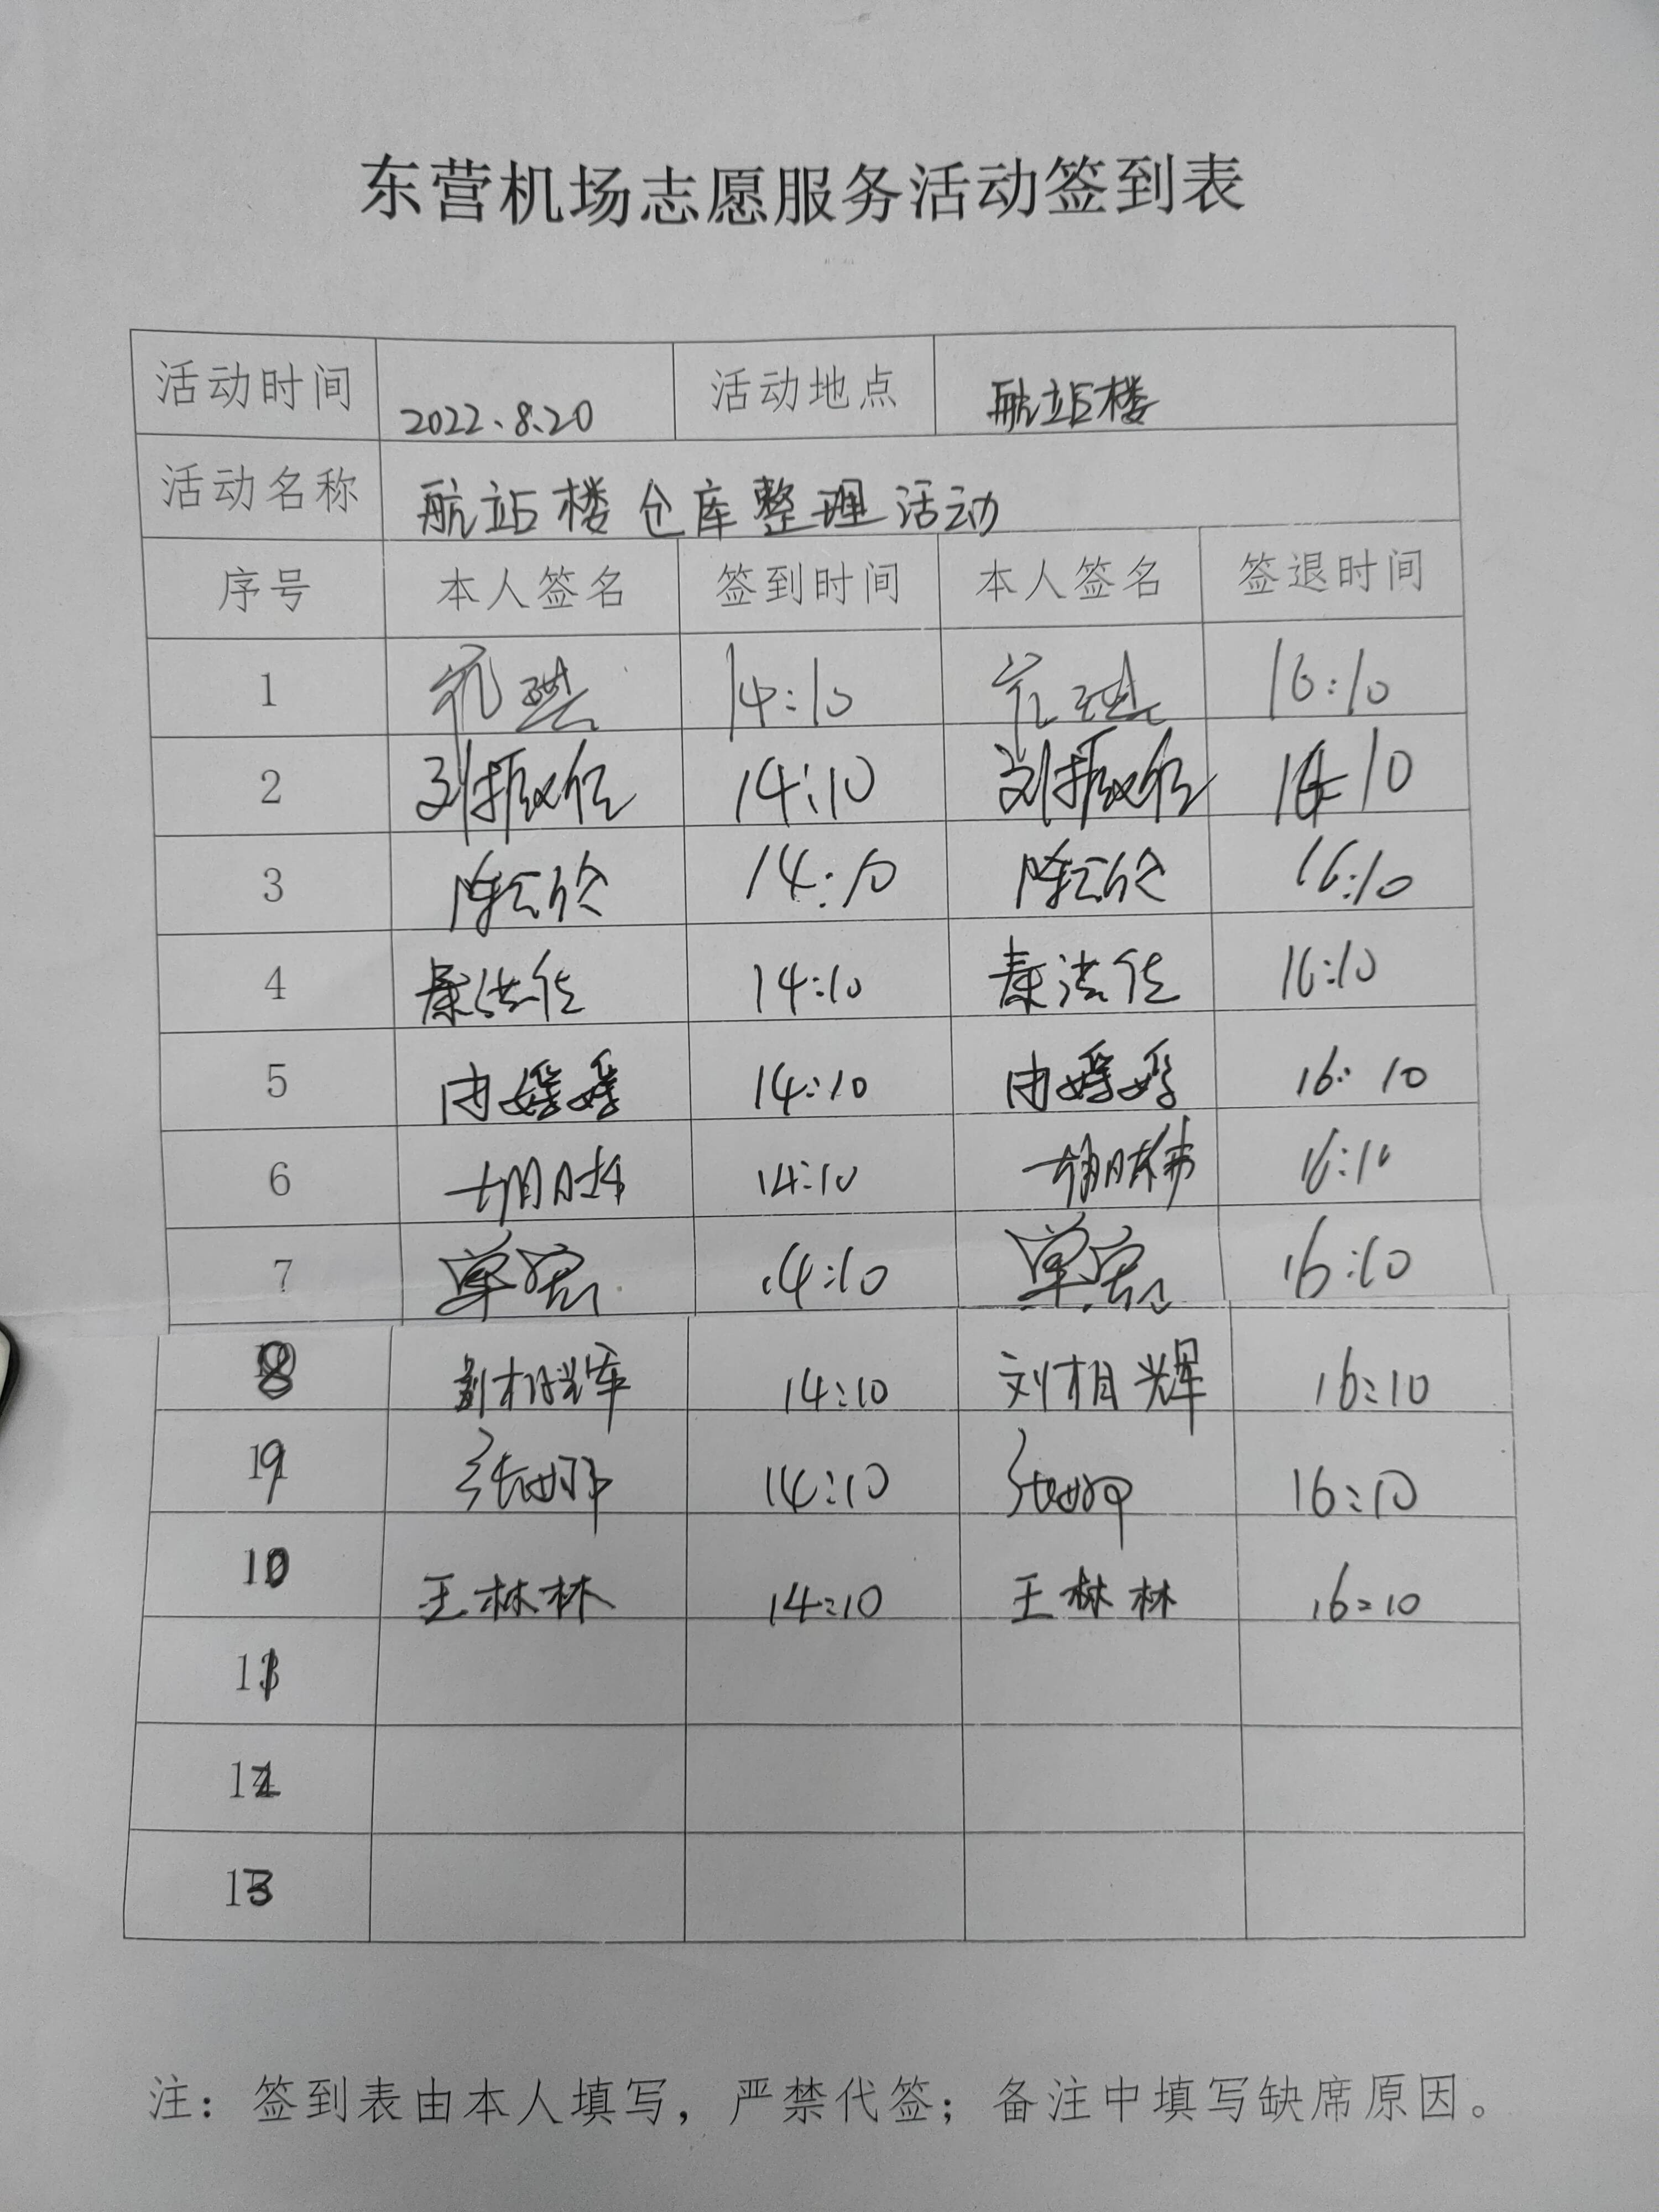 东营机场志愿服务活动签到表
活动时间 2022.8.20 活动地点 航站楼
活动名称 航站楼仓库整理活动
序号 本人签名 签到时间 本人签名 签退时间
1 14:10 16:10
2 刘振 14:10 刘振 16:10
3 陈 14:10 陈 16:10
4 秦法 14:10 秦法 16:10
5 由婷婷 14:10 由婷婷 16:10
6 胡 14:10 胡 16:10
7 单宏 14:10 单宏 16:10
8 刘相辉 14:10 刘相辉 16:10
9 张娜 14:10 张娜 16:10
10 王林林 14:10 王林林 16:10
11
12
13
注：签到表由本人填写，严禁代签；备注中填写缺席原因。